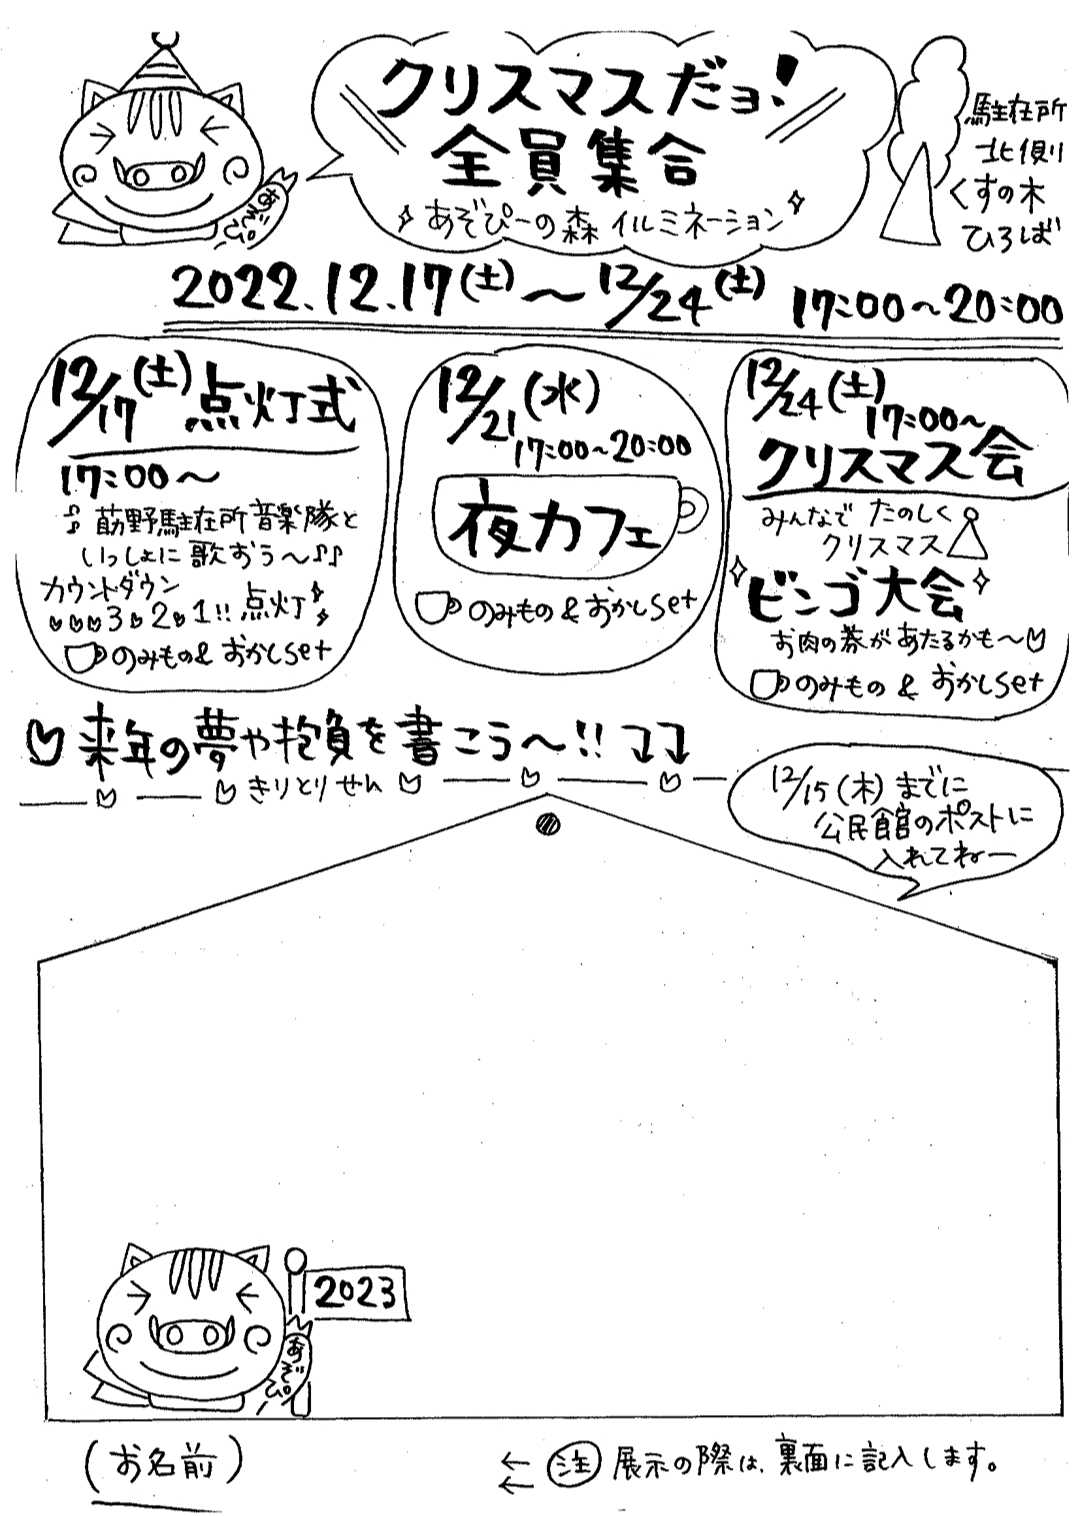 クリスマスだョ!
全員集合
あぞぴーの森 イルミネーション
あぞぴ
駐在所
北側
くすの木
ひろば
2022.12.17(土)〜12/24(土) 17:00〜20:00
12/17(土)点灯式
17:00〜
♪ 莇野駐在所音楽隊と
いっしょに歌おう〜♪♪
カウントダウン
♡♡♡3♡2♡1!! 点灯
のみもの& おかしset
12/21(水)
17:00~20:00
夜カフェ
のみもの & おかしset
12/24(土)
17:00~
クリスマス会
みんなで たのしく
クリスマス
ビンゴ大会
お肉の券があたるかも〜♡
のみもの & おかしset
♡来年の夢や抱負を書こう〜!!
きりとりせん
12/15(木)までに
公民館のポストに
入れてねー
2023
あぞぴ
(お名前)
←← 注 展示の際は、裏面に記入します。